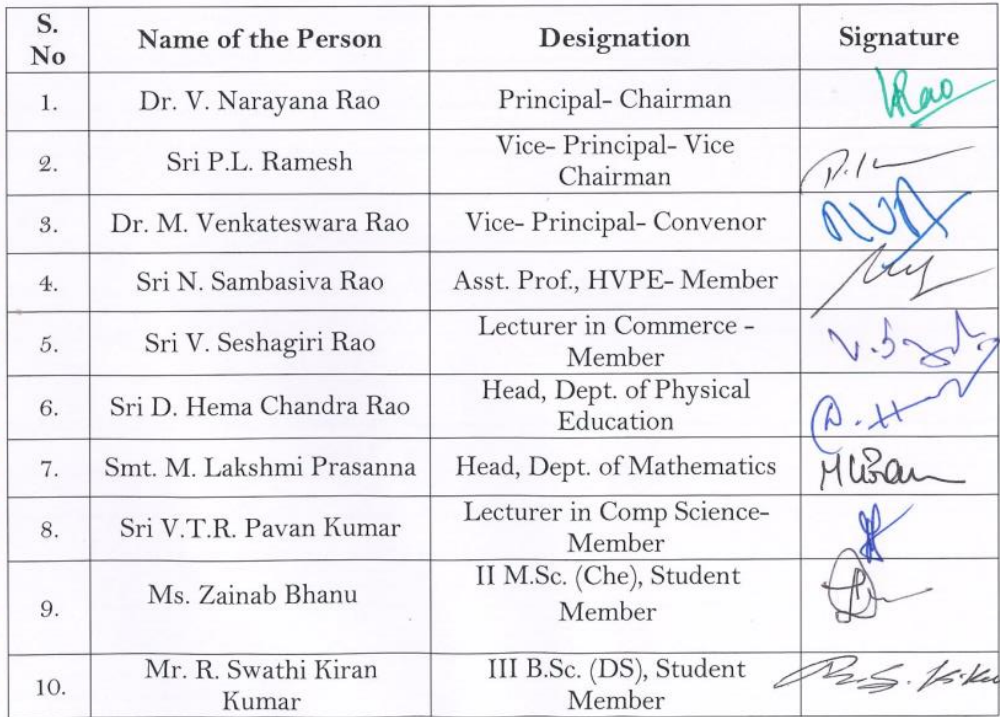 S. No Name of the Person Designation Signature
1. Dr. V. Narayana Rao Principal- Chairman VRao
2. Sri P.L. Ramesh Vice- Principal- Vice
Chairman
3. Dr. M. Venkateswara Rao Vice- Principal- Convenor
4. Sri N. Sambasiva Rao Asst. Prof., HVPE- Member
5. Sri V. Seshagiri Rao Lecturer in Commerce -
Member
6. Sri D. Hema Chandra Rao Head, Dept. of Physical
Education
7. Smt. M. Lakshmi Prasanna Head, Dept. of Mathematics
8. Sri V.T.R. Pavan Kumar Lecturer in Comp Science-
Member
9. Ms. Zainab Bhanu II M.Sc. (Che), Student
Member
10. Mr. R. Swathi Kiran
Kumar III B.Sc. (DS), Student
Member